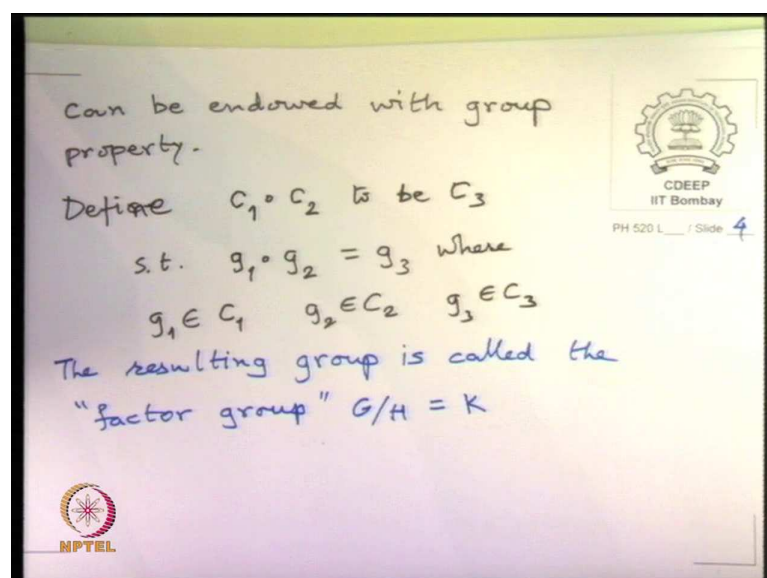 can be endowed with group
property.
Define C₁ ∘ C₂ to be C₃
s.t. g₁ ∘ g₂ = g₃ where
g₁ ∈ C₁ g₂ ∈ C₂ g₃ ∈ C₃
The resulting group is called the
"factor group" G/H = K
CDEEP
IIT Bombay
PH 520 L___ / Slide 4
NPTEL